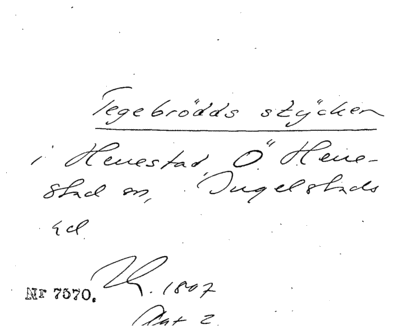 Tegebrödds stÿcken
i Henestad, Ö. Hene-
stad sn, Ingelstads
hd.
Nr 7570. 1807